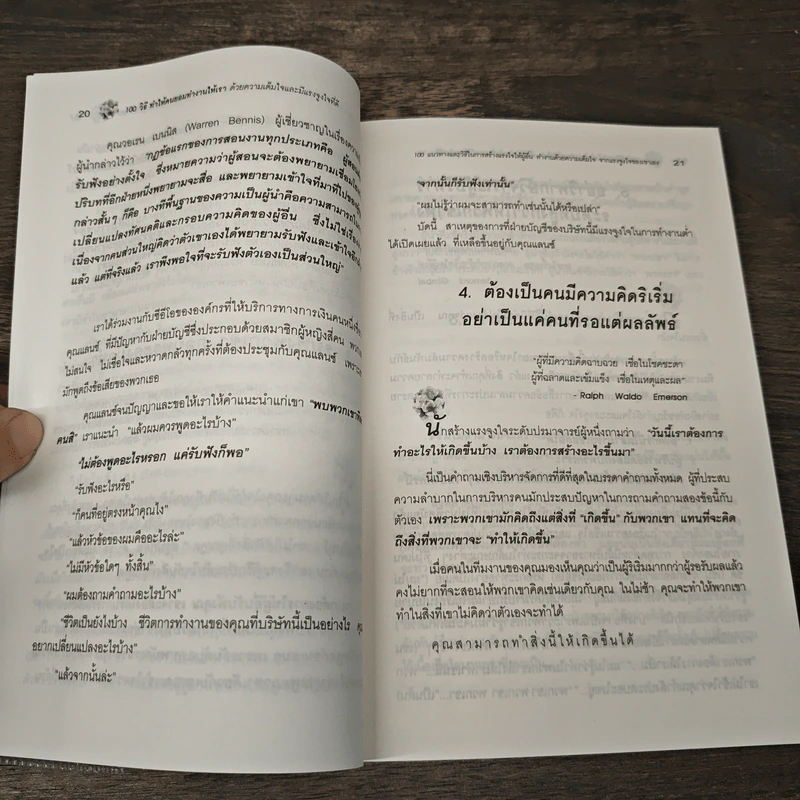 20 100 วิธี ทำให้คนยอมทำงานให้เรา ด้วยความเต็มใจและมีแรงจูงใจที่ดี
คุณวอเรน เบนนิส (Warren Bennis) ผู้เชี่ยวชาญในเรื่องความ
ผู้นำกล่าวไว้ว่า "กฎข้อแรกของการสอนงานทุกประเภทคือ ผู้สอน
รับฟังอย่างตั้งใจ ซึ่งหมายความว่าผู้สอนจะต้องพยายามเชื่อมโยง
ปริบทที่อีกฝ่ายหนึ่งพยายามจะสื่อ และพยายามเข้าใจที่มาที่ไปของ
กล่าวสั้นๆ ก็คือ บางทีพื้นฐานของความเป็นผู้นำคือความสามารถใน
เปลี่ยนแปลงทัศนคติและกรอบความคิดของผู้อื่น ซึ่งไม่ใช่เรื่อง
เนื่องจากคนส่วนใหญ่คิดว่าตัวเขาเองได้พยายามรับฟังและเข้าใจอีก
แล้ว แต่ที่จริงแล้ว เราพึงพอใจที่จะรับฟังตัวเองเป็นส่วนใหญ่"
เราได้ร่วมงานกับซีอีโอขององค์กรที่ให้บริการทางการเงินคนหนึ่ง
คุณแลนซ์ ที่มีปัญหากับฝ่ายบัญชีซึ่งประกอบด้วยสมาชิกผู้หญิงสี่คน
ไม่สนใจ ไม่เชื่อใจและหวาดกลัวทุกครั้งที่ต้องประชุมกับคุณแลนซ์ เพราะ
มักพูดถึงข้อเสียของพวกเธอ
คุณแลนซ์จนปัญญาและขอให้เราให้คำแนะนำแก่เขา "พบพวกเขาที
คนสิ" เราแนะนำ "แล้วผมควรพูดอะไรบ้าง"
"ไม่ต้องพูดอะไรหรอก แค่รับฟังก็พอ"
"รับฟังอะไรหรือ"
"ก็คนที่อยู่ตรงหน้าคุณไง"
"แล้วหัวข้อของผมคืออะไรล่ะ"
"ไม่มีหัวข้อใดๆ ทั้งสิ้น"
"ผมต้องถามคำถามอะไรบ้าง"
"ชีวิตเป็นยังไงบ้าง ชีวิตการทำงานของคุณที่บริษัทนี้เป็นอย่างไร
อยากเปลี่ยนแปลงอะไรบ้าง"
"แล้วจากนั้นล่ะ"
100 แนวทางและวิธีในการสร้างแรงจูงใจให้ผู้อื่น ทำงานด้วยความเต็มใจ จากแรงจูงใจของเขาเอง 21
"จากนั้นก็รับฟังเท่านั้น"
"ผมไม่รู้ว่าผมจะสามารถทำเช่นนั้นได้หรือเปล่า"
บัดนี้ สาเหตุของการที่ฝ่ายบัญชีของบริษัทนี้มีแรงจูงใจในการทำงานต่ำ
ได้เปิดเผยแล้ว ที่เหลือขึ้นอยู่กับคุณแลนซ์
4. ต้องเป็นคนมีความคิดริเริ่ม
อย่าเป็นแค่คนที่รอแต่ผลลัพธ์
"ผู้ที่มีความคิดฉาบฉวย เชื่อในโชคชะตา
ผู้ที่ฉลาดและเข้มแข็ง เชื่อในเหตุและผล"
- Ralph Waldo Emerson
นักสร้างแรงจูงใจระดับปรมาจารย์ผู้หนึ่งถามว่า "วันนี้เราต้องการ
ทำอะไรให้เกิดขึ้นบ้าง เราต้องการสร้างอะไรขึ้นมา"
นี่เป็นคำถามเชิงบริหารจัดการที่ดีที่สุดในบรรดาคำถามทั้งหมด ผู้ที่ประสบ
ความลำบากในการบริหารคนมักประสบปัญหาในการถามคำถามสองข้อนี้กับ
ตัวเอง เพราะพวกเขามักคิดถึงแต่สิ่งที่ "เกิดขึ้น" กับพวกเขา แทนที่จะคิด
ถึงสิ่งที่พวกเขาจะ "ทำให้เกิดขึ้น"
เมื่อคนในทีมงานของคุณมองเห็นคุณว่าเป็นผู้ริเริ่มมากกว่าผู้รอรับผลแล้ว
คงไม่ยากที่จะสอนให้พวกเขาคิดเช่นเดียวกับคุณ ในไม่ช้า คุณจะทำให้พวกเขา
ทำในสิ่งที่เขาไม่คิดว่าตัวเองจะทำได้
คุณสามารถทำสิ่งนี้ให้เกิดขึ้นได้